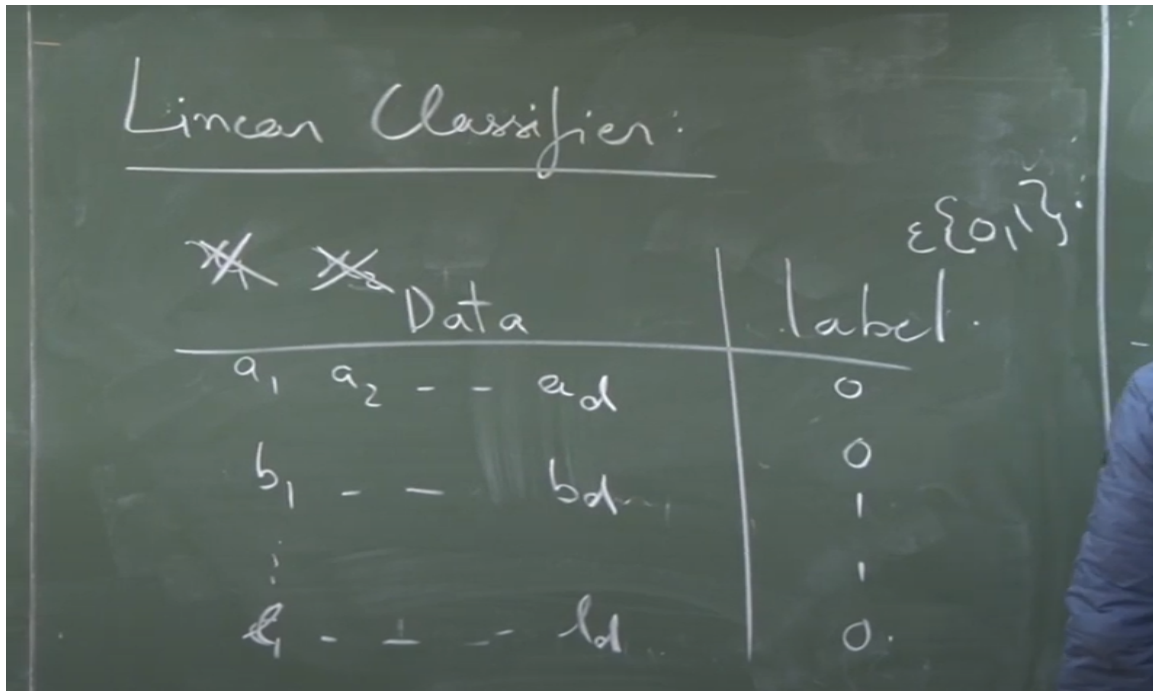 Linear Classifier:
ε{0,1}.
Data label.
a₁ a₂ - - ad 0
b₁ - - bd 0
1
⋮ 1
l₁ - - - ld 0.